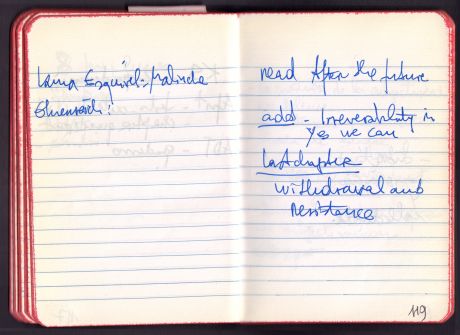 Laura Esquivel: Malinche
read After the future
add - Irreversibility in
Yes we can
Last chapter
withdrawal and
Resistance
119